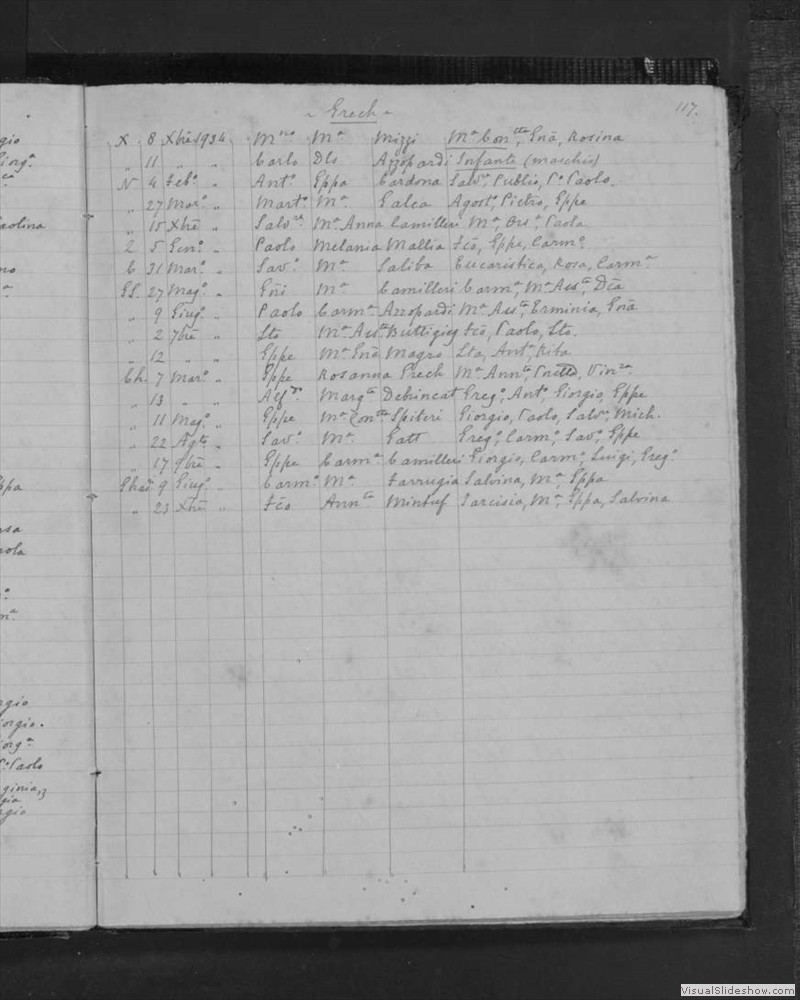 ~ Grech ~ 117.
X 8 Xbre 1934 Mno Ma Mizzi Ma Contta, Gnã, Rosina
„ 11 „ „ Carlo Dls Azzopardi Infante (maschio)
N 4 Febo „ Anto Gppa Cardona Salvre, Publio, Po Paolo.
„ 27 Marо „ Marto Ma Galea Agosto, Pietro, Gppe
„ 15 Xbre „ Salvre Ma Anna Camilleri Ma, Orsa, Paola
2 5 Geno „ Paolo Melania Mallia Fco, Gppe, Carmo
C 31 Maro „ Savo Ma Saliba Eucaristica, Rosa, Carma
GG. 27 Mago „ Gñi Ma Camilleri Carma, Ma Assta, Dca
„ 9 Giugo „ Paolo Carma Azzopardi Ma Assta, Erminia, Gnã
„ 2 7bre „ Lto Ma Assta Buttigieg Fco, Paolo, Lto.
„ 12 „ „ Gppe Ma Gnã Magro Lta, Anta, Rita
Ch. 7 Maro „ Gppe Rosanna Grech Ma Annta, Vinza
„ 13 „ „ Alfdo Margta Debrincat Grego, Anto, Giorgio, Gppe
„ 11 Mago „ Gppe Ma Contta Spiteri Giorgio, Paolo, Salvre, Mich.
„ 22 Agto „ Savo Ma Gatt Grego, Carmo, Savo, Gppe
„ 17 9bre „ Gppe Carma Camilleri Giorgio, Carmo, Luigi, Grego
Ghad 9 Giugo „ Carmo Ma Farrugia Salvina, Ma, Gppa
„ 23 Xbre „ Fco Annta Mintuf Tarcisio, Ma, Gppa, Salvina
VisualSlideshow.com